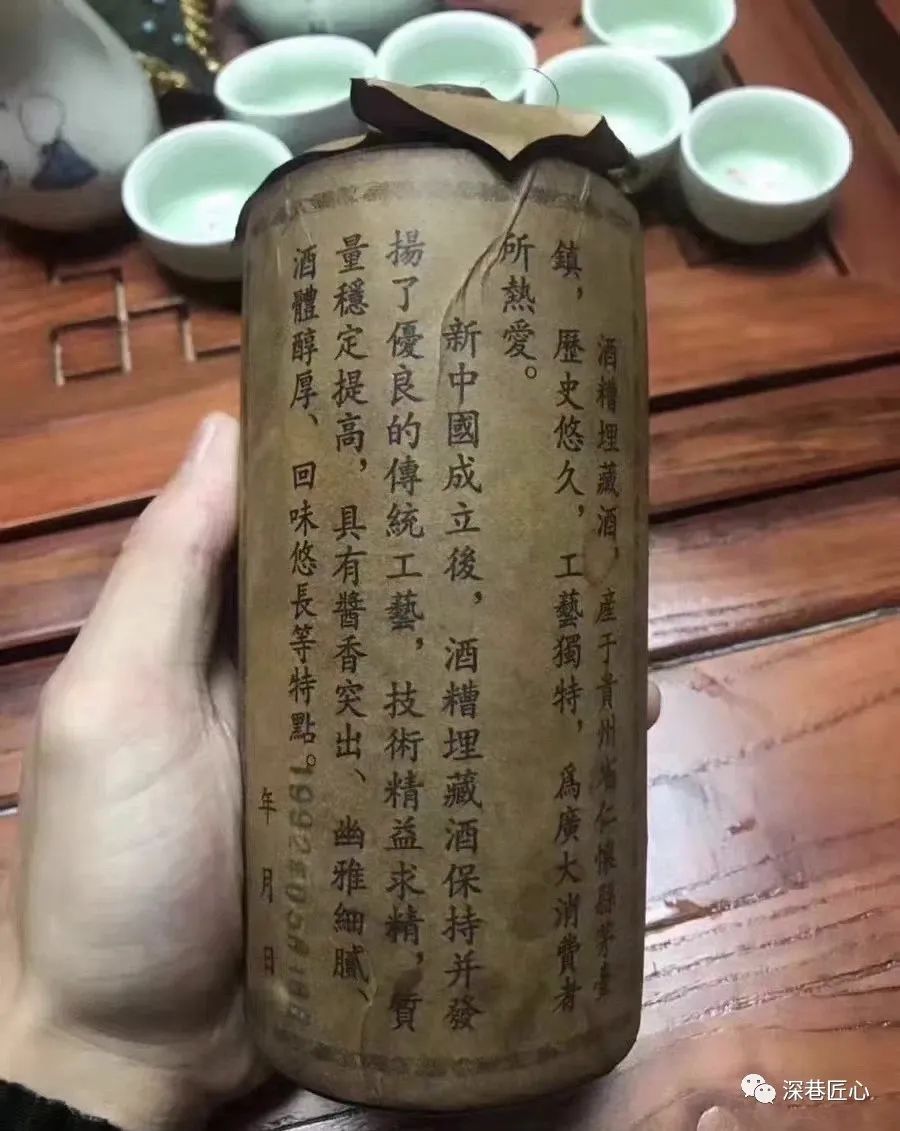 酒糟埋藏酒，産于貴州省仁懷縣茅臺
鎮，歷史悠久，工藝獨特，爲廣大消費者
所熱愛。
新中國成立後，酒糟埋藏酒保持并發
揚了優良的傳統工藝，技術精益求精，質
量穩定提高，具有醬香突出、幽雅細膩、
酒體醇厚、回味悠長等特點。
年 月 日
1992年05月18日
深巷匠心